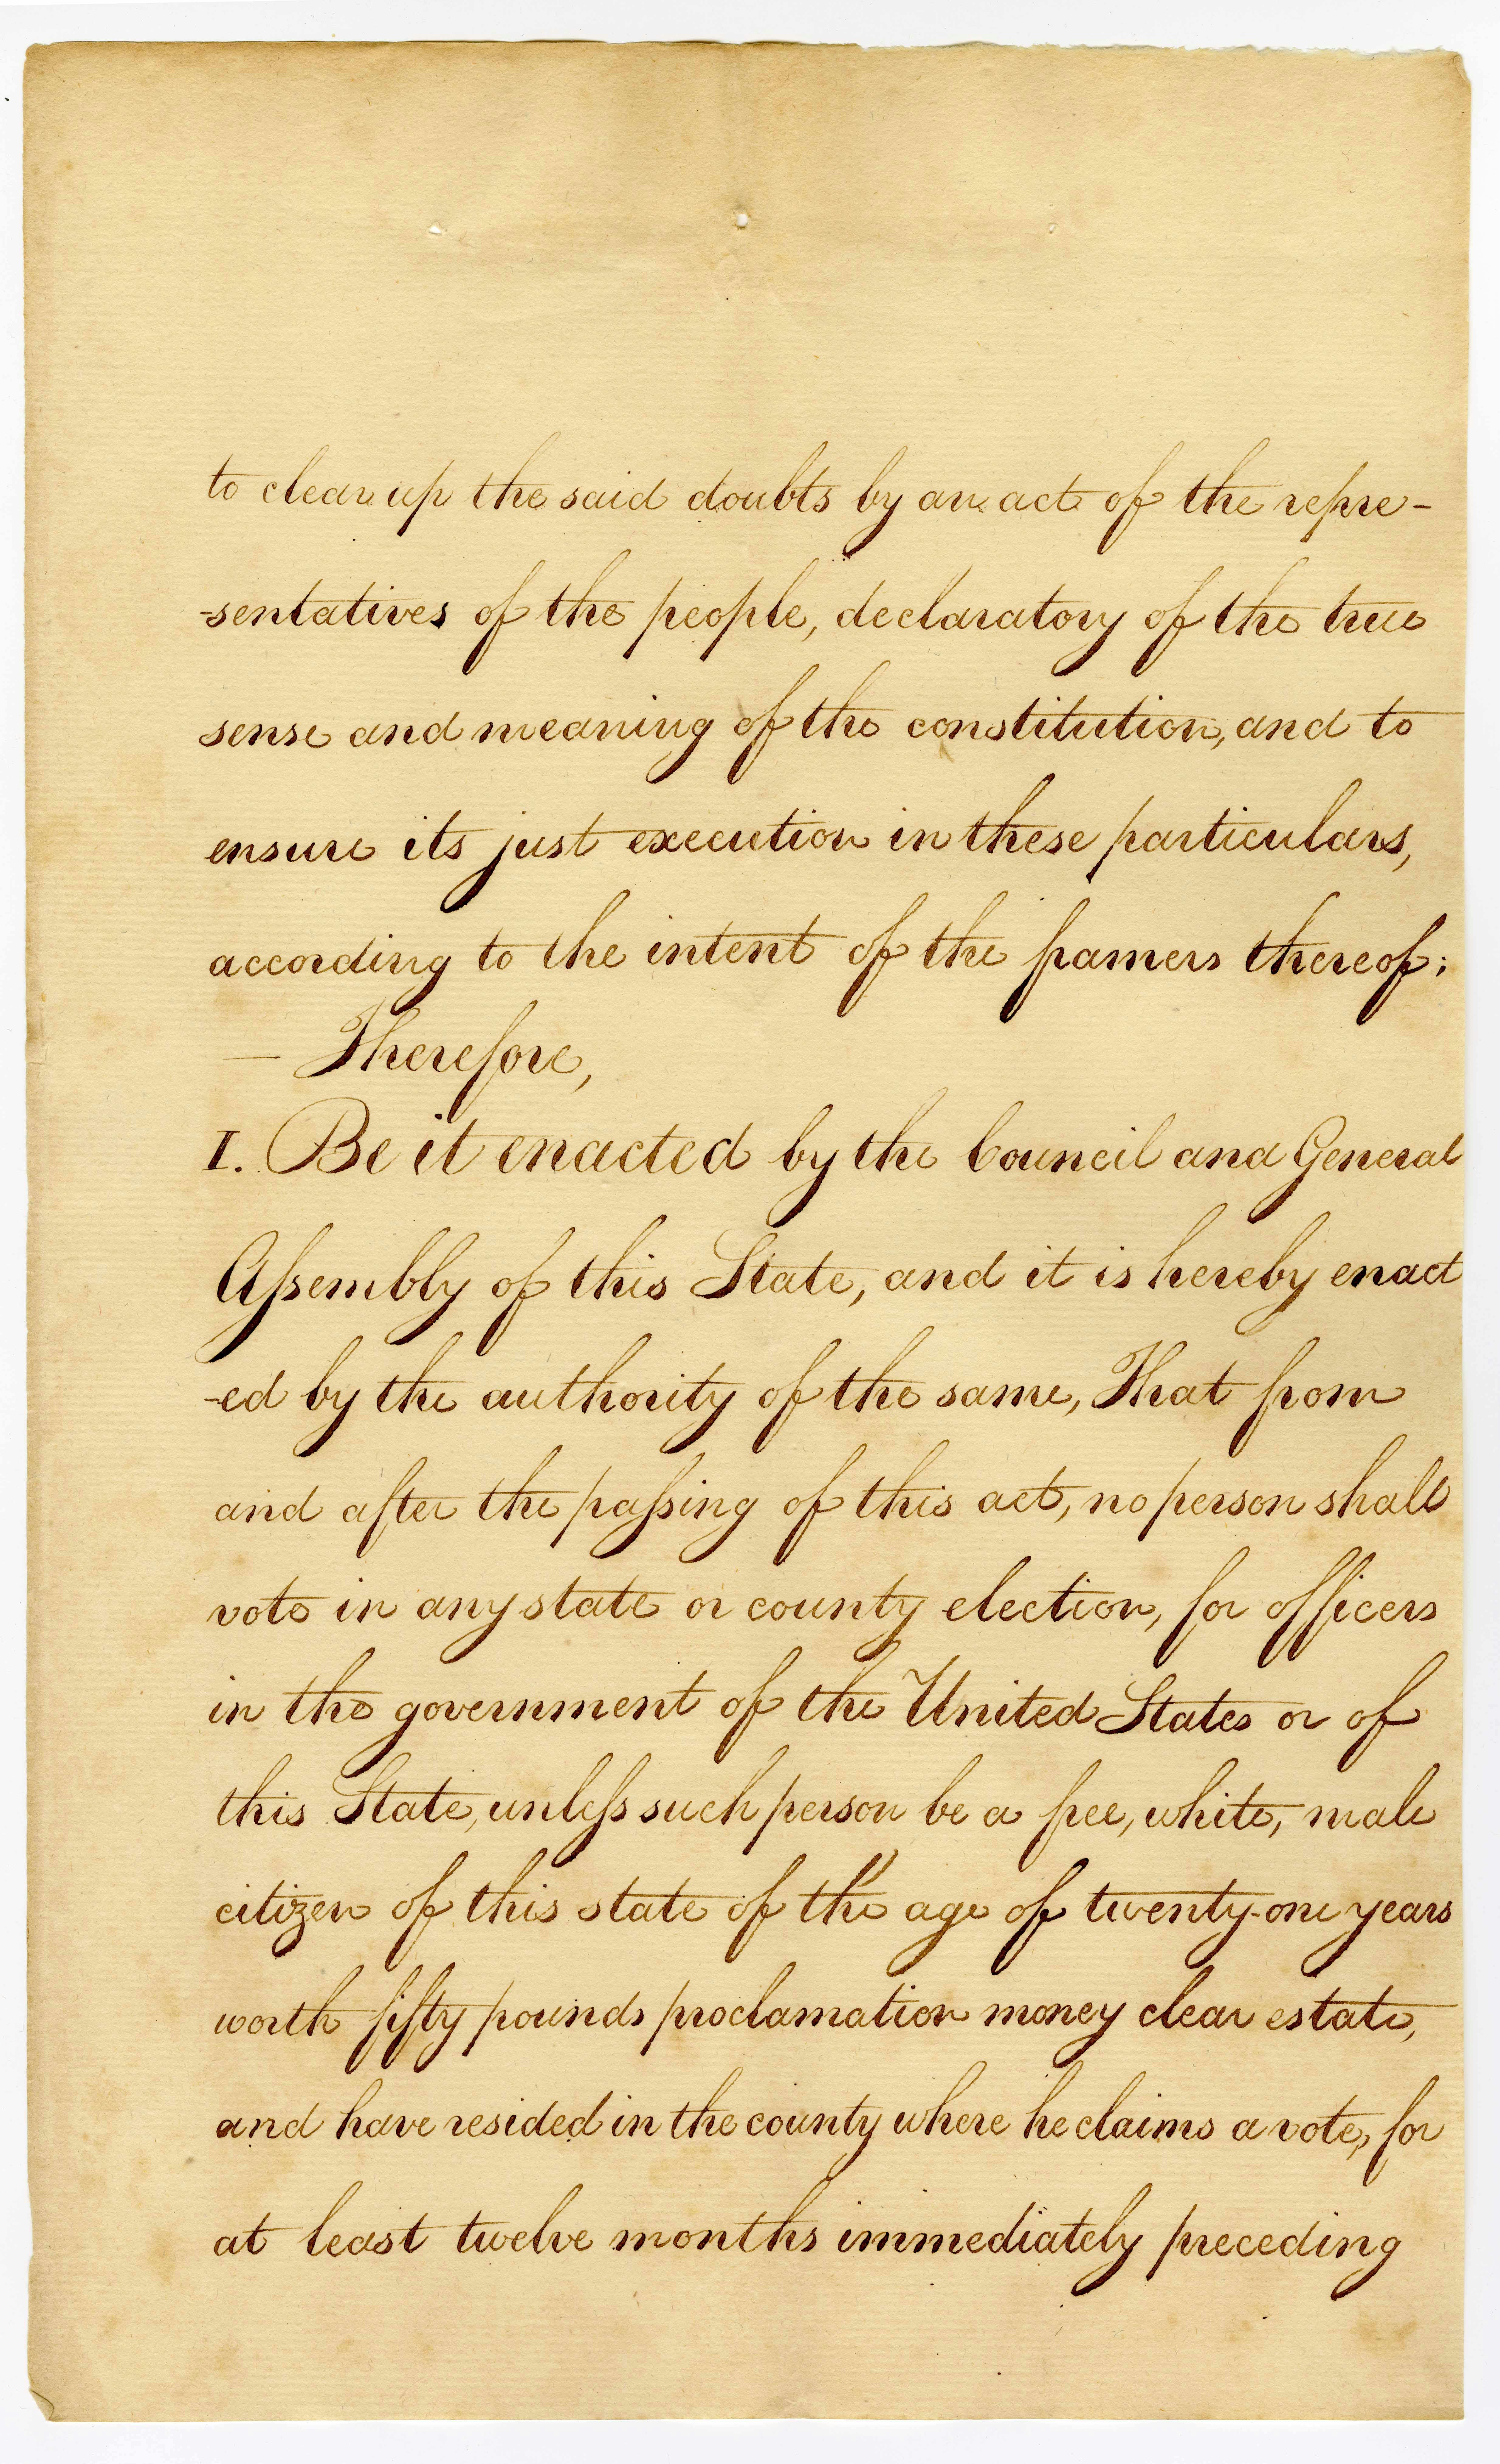 to clear up the said doubts by an act of the repre-
-sentatives of the people, declaratory of the true
sense and meaning of the constitution, and to
ensure its just execution in these particulars,
according to the intent of the framers thereof;
— Therefore,
I. Be it enacted by the Council and General
Aſsembly of this State, and it is hereby enact
-ed by the authority of the same, That from
and after the paſsing of this act, no person shall
vote in any state or county election, for officers
in the government of the United States or of
this State, unleſs such person be a free, white, male
citizen of this state of the age of twenty-one years
worth fifty pounds proclamation money clear estate,
and have resided in the county where he claims a vote, for
at least twelve months immediately preceding